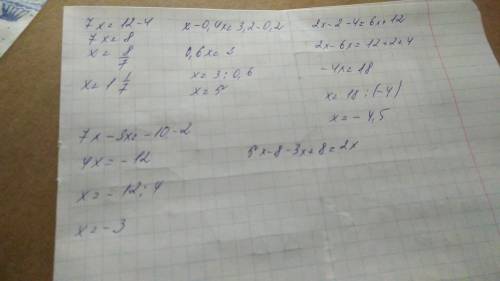 7x = 12-4
7x = 8
x = 8/7
x = 1 1/7
x-0,4x=3,2-0,2
0,6x= 3
x = 3:0,6
x = 5
2x-2-4=6x+12
2x-6x=12+2+4
-4x=18
x=18:(-4)
x=-4,5
7x-3x=-10-2
4x=-12
x=-12:4
x=-3
5x-8-3x+8=2x